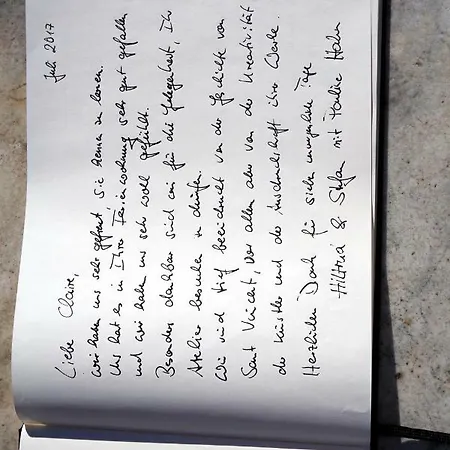 Juli 2017
Liebe Claire,
wir haben uns sehr gefreut, Sie kennen zu lernen.
Uns hat es in Ihrer Ferienwohnung sehr gut gefallen
und wir haben uns sehr wohl gefühlt.
Besonders dankbar sind wir für die Gelegenheit, Ihr
Atelier besuchen zu dürfen.
Wir sind tief beeindruckt von der Geschichte von
Saint Vincent, vor allem aber von der Kreativität
der Künstler und der Ausdruckskraft ihrer Werke.
Herzlichen Dank für sieben Tage
Hiltrud & Stefan mit Familie Hahn